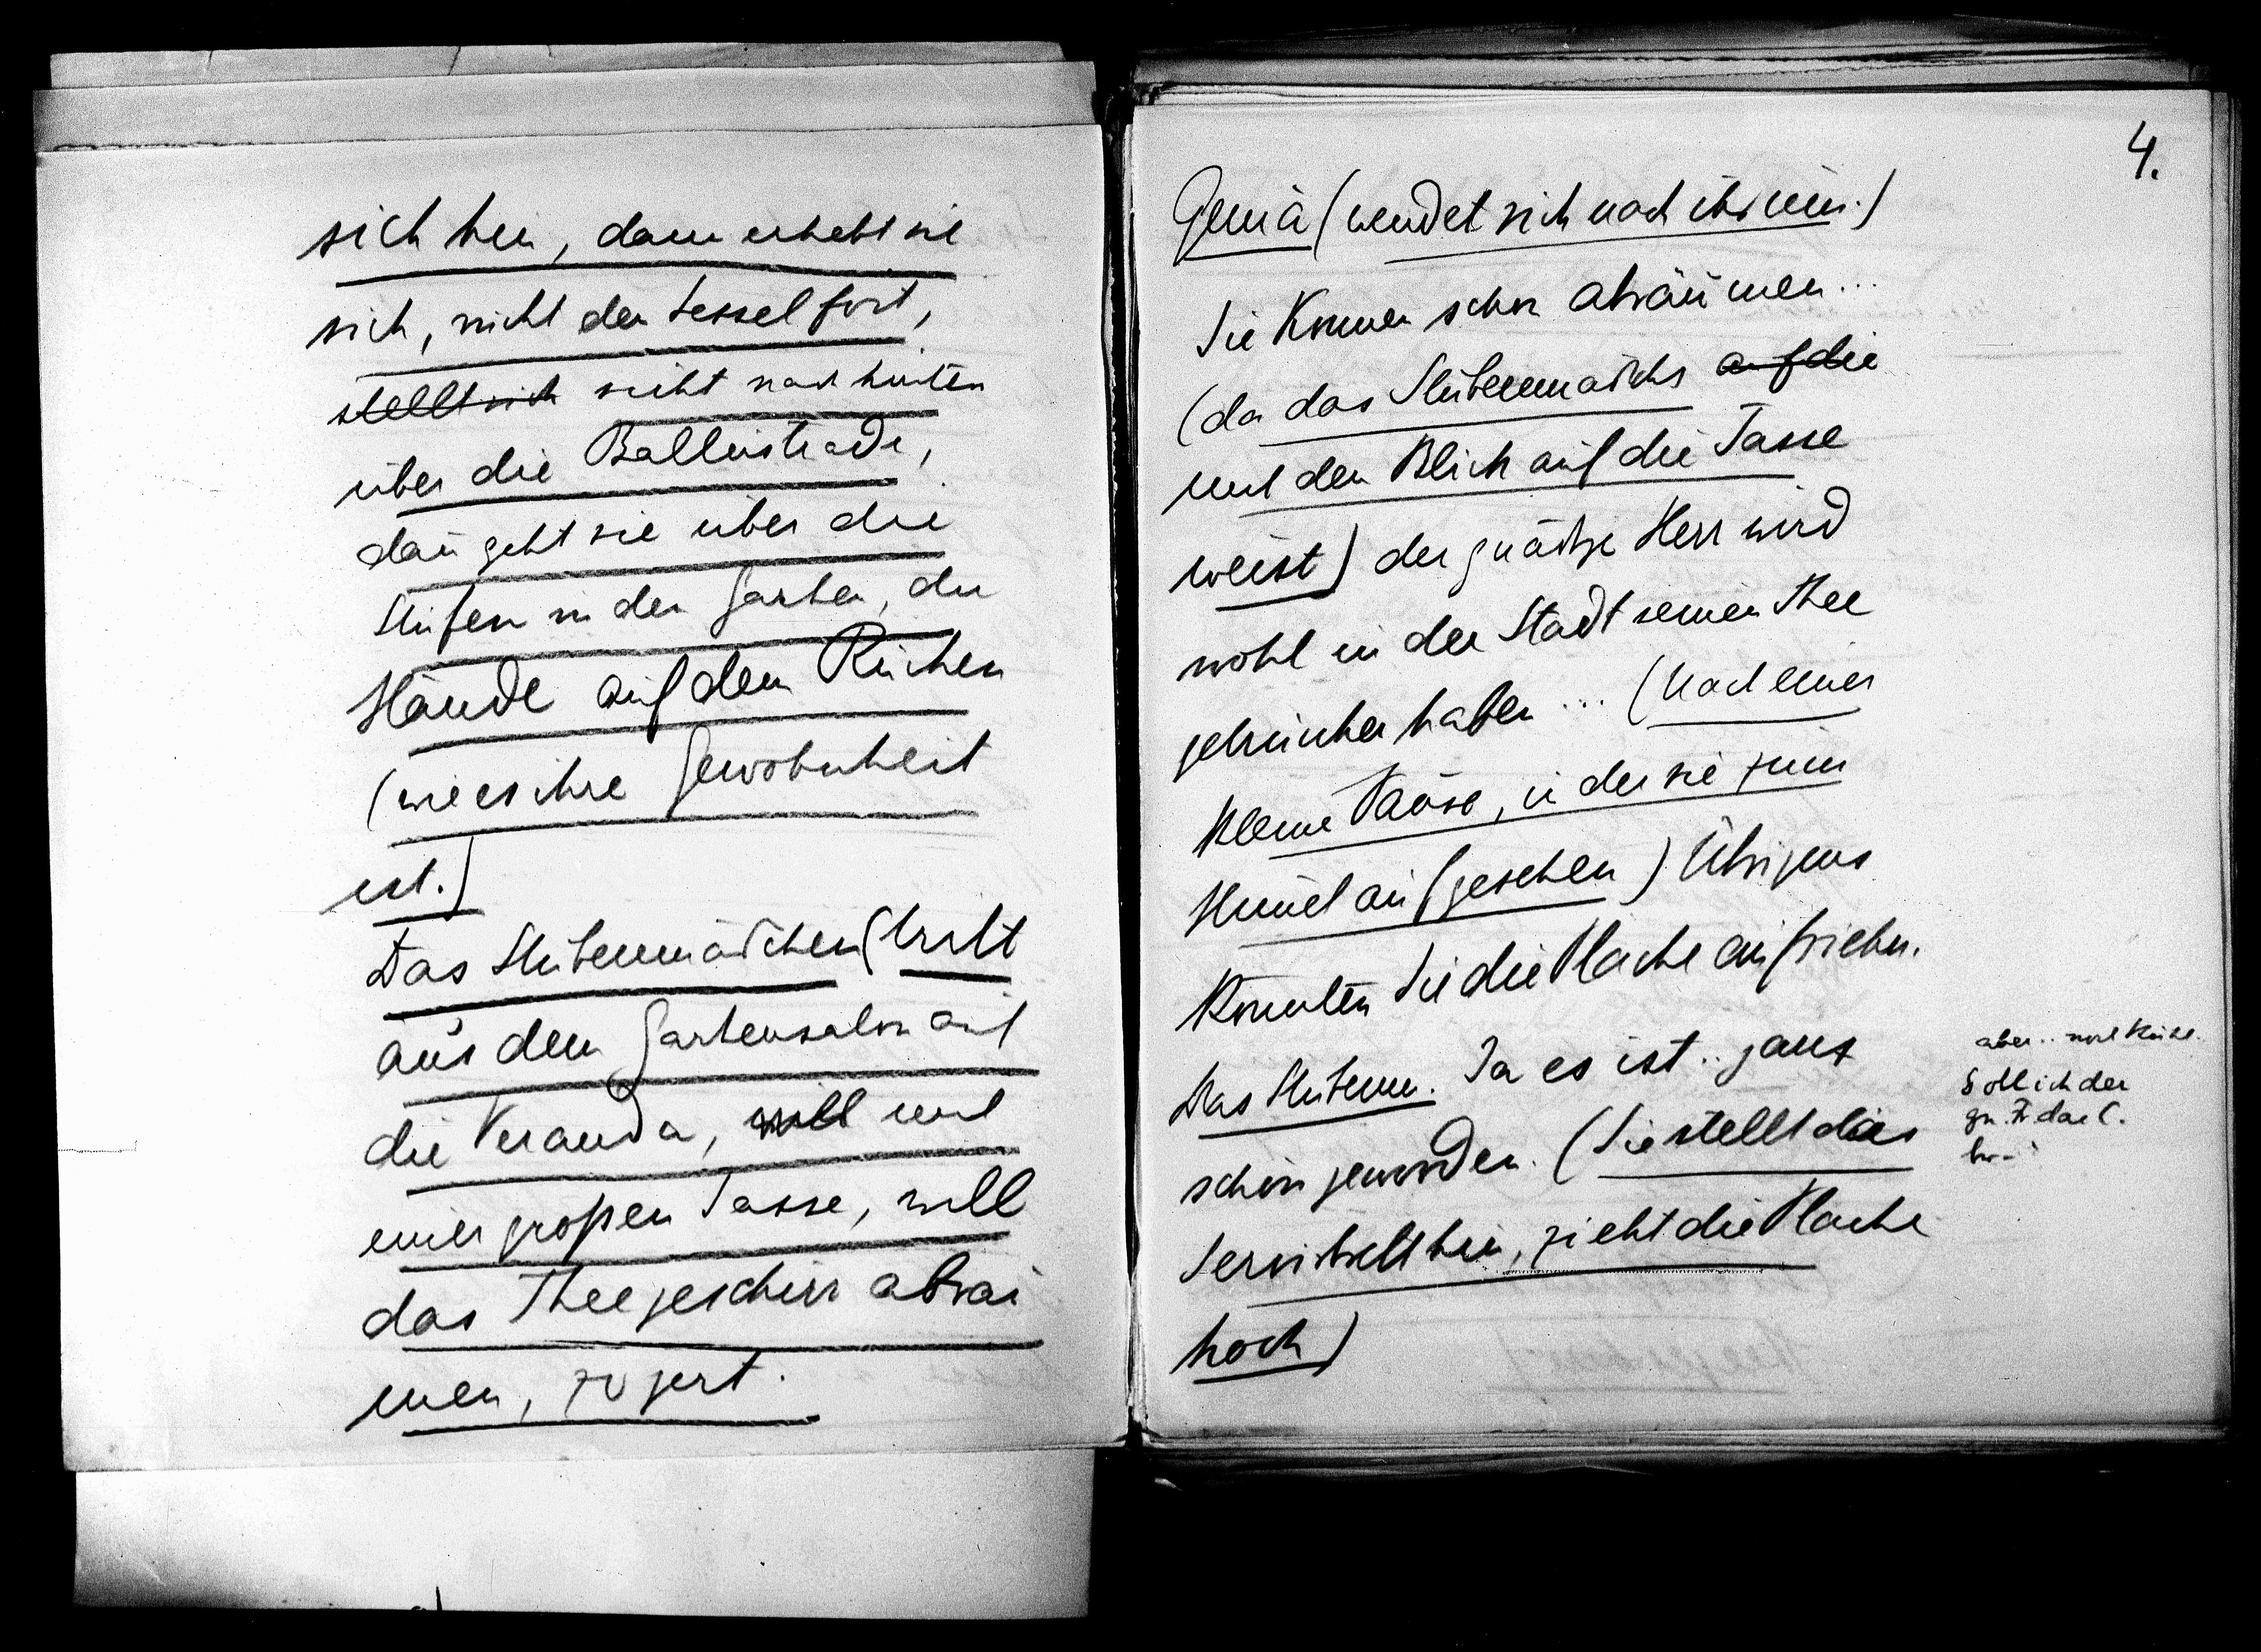 sich hin, dann erhebt sie
sich, rückt den Sessel fort,
stellt sich sieht nach hinten
über die Ballustrade,
dañ geht sie über die
Stufen in den Garten, die
Hände auf dem Rücken
(wie es ihre Gewohnheit
ist.)
Das Stubenmädchen (tritt
aus dem Gartensalon auf
die Veranda, will mit
einer großen Tasse, will
das Theegeschirr abräu
men, zögert.
4.
Genia (wendet sich nach ihr um.)
Sie können schon abräumen...
(da das Stubenmädch auf die
mit dem Blick auf die Tasse
weist) der gnädige Herr wird
wohl in der Stadt seinen Thee
getrunken haben ... (Nach einer
kleine Pause, in der sie zum
Himel aufgesehen) Übrigens
könnten Sie die Plache aufziehn.
Das Stubenm. Ja es ist .. ganz
schön geworden. (Sie stellt das
Servirbrett hin, zieht die Plache
hoch)
aber .. kühl.
Soll ich der
gn. Fr. das C.